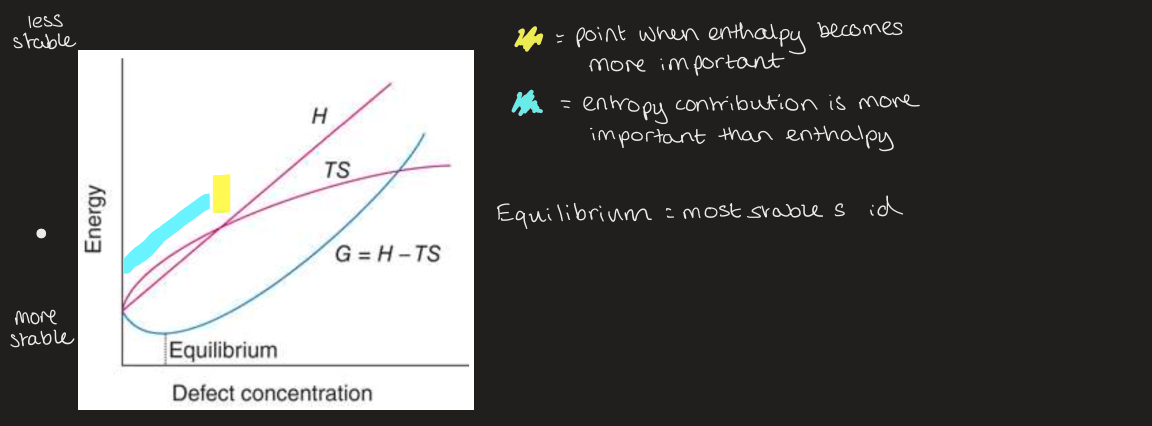 less
stable
= point when enthalpy becomes
more important
= entropy contribution is more
important than enthalpy
H
TS
Energy
Equilibrium = most stable s id
G = H – TS
more
stable
Equilibrium
Defect concentration